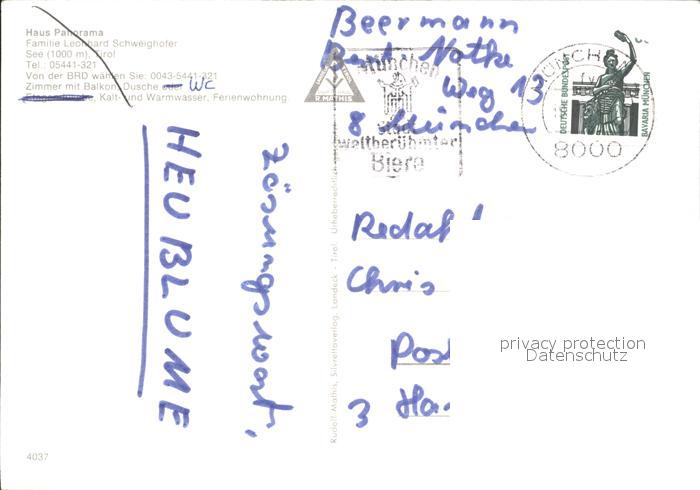 Haus Panorama
Familie Leonhard Schweighofer
See (1000 m), Tirol
Tel.: 05441-321
Von der BRD wählen Sie: 0043-5441-321
Zimmer mit Balkon, Dusche WC
Kalt- und Warmwasser, Ferienwohnung.
Beermann
Bernt-Notke
Weg 13
8 München
R. MATHIS
München
Stadt
weltberühmter
Biere
MÜNCHEN
8000
DEUTSCHE BUNDESPOST
BAVARIA MÜNCHEN
Lösungswort:
HEUBLUME
Rudolf Mathis, Silvrettaverlag, Landeck - Tirol. Urheberrechtlich
Redak
Chris
Post
3 Han
privacy protection
Datenschutz
4037